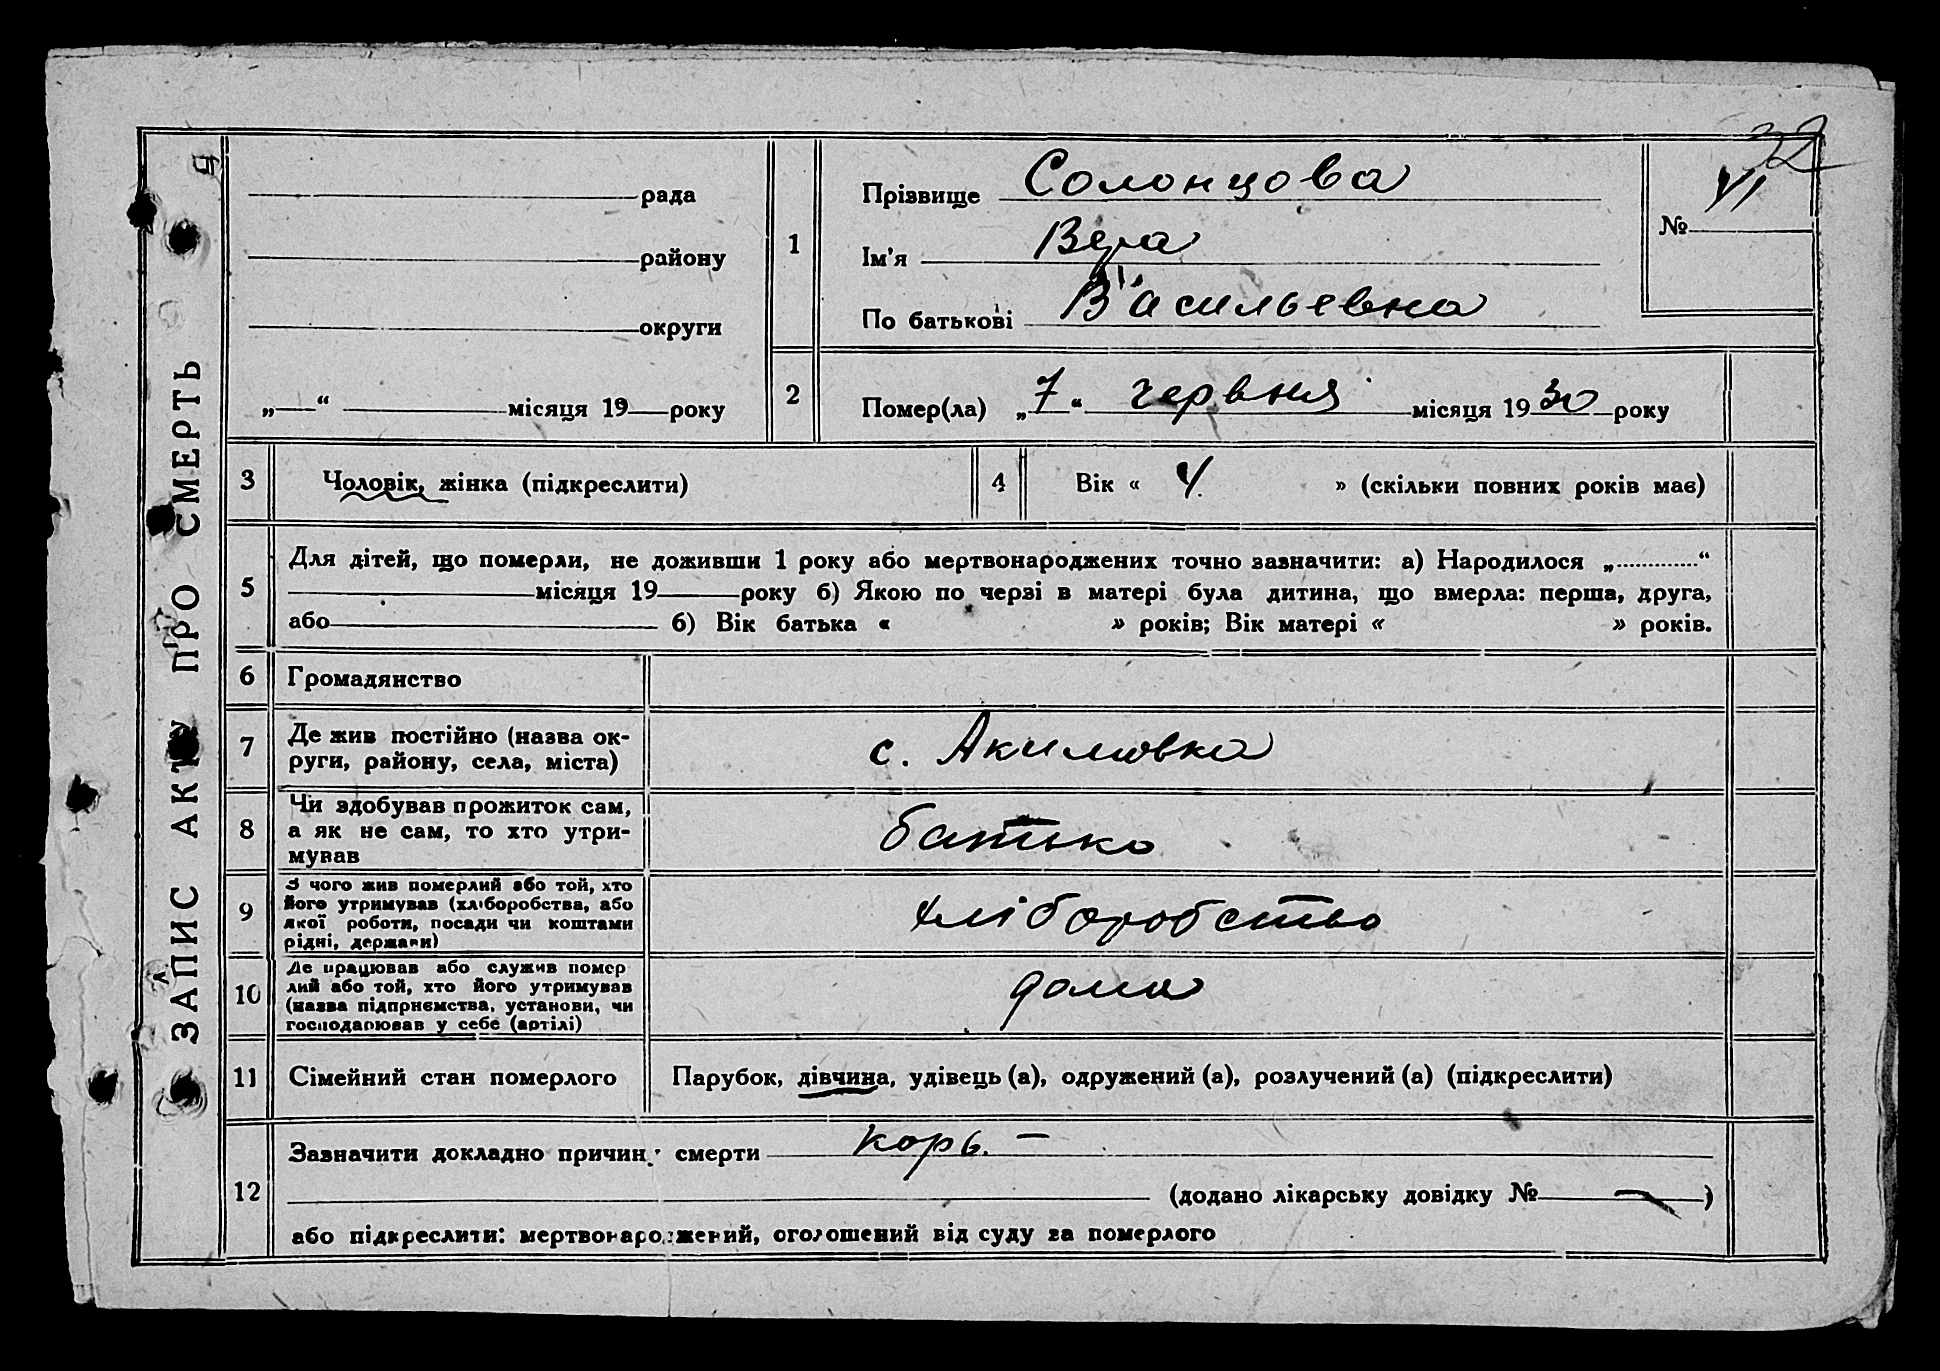 32
ЗАПИС АКТУ ПРО СМЕРТЬ
рада
району
округи
„ “ місяця 19 року
1
Прізвище Солонцова
Ім'я Вера
По батькові Васильевна
№ VI
2
Помер(ла) „7“ червня місяця 1930 року
3 Чоловік, жінка (підкреслити)
4 Вік « 4 » (скільки повних років має)
5
Для дітей, що померли, не доживши 1 року або мертвонароджених точно зазначити: а) Народилося „ “
місяця 19 року б) Якою по черзі в матері була дитина, що вмерла: перша, друга,
або б) Вік батька « » років; Вік матері « » років.
6 Громадянство
7 Де жив постійно (назва ок-
руги, району, села, міста)
с. Акимовка
8 Чи здобував прожиток сам,
а як не сам, то хто утри-
мував
батько
9 З чого жив померлий або той, хто
його утримував (хліборобства, або
якої роботи, посади чи коштами
рідні, держави)
хліборобство
10 Де працював або служив помер
лий або той, хто його утримував
(назва підприємства, установи, чи
господарював у себе (артілі)
дома
11 Сімейний стан померлого
Парубок, дівчина, удівець (а), одружений (а), розлучений (а) (підкреслити)
12
Зазначити докладно причину смерти корь. –
(додано лікарську довідку № — )
або підкреслити: мертвонароджений, оголошений від суду за померлого